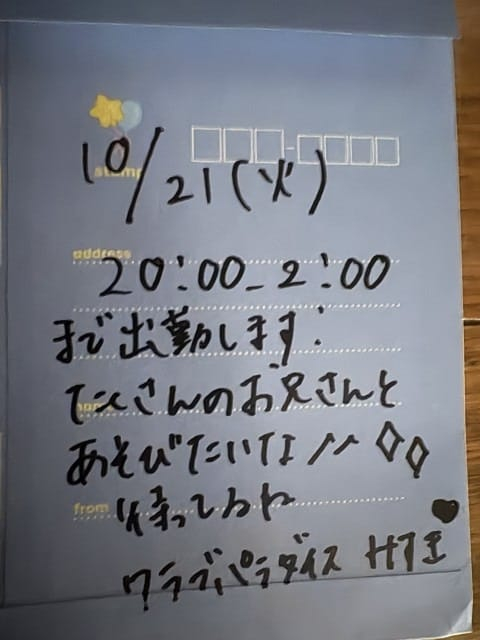 stamp
10/21(火)
address
20:00-2:00
まで出勤します!
たくさんのお兄さんと
あそびたいな // ◇◇
from 待ってるね
♥
クラブパラダイス